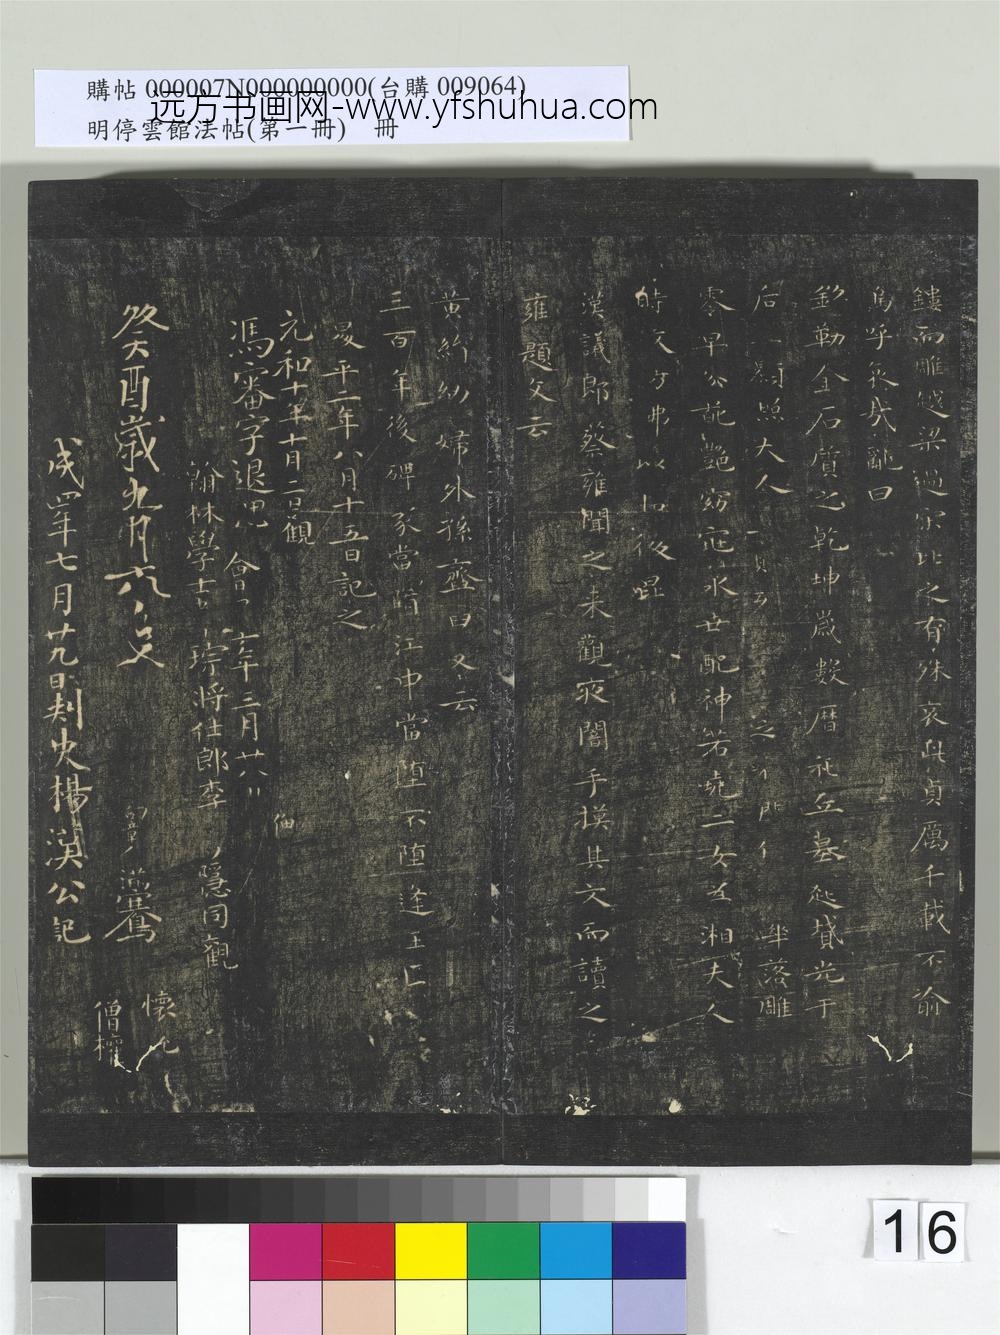 購帖 000007N000000000(台購 009064)
远方书画网-www.yfshuhua.com
明停雲館法帖(第一冊) 冊
鏤而雕越梁過宋比之有殊哀此貞厲千載不渝
嗚呼哀哉亂曰
銘勒金石質之乾坤歲數曆祀丘墓起墳光于
后 照大人
落雕
零早分葩艷窈窕永世配神若堯二女為湘夫人
時 髣髴以 後昆
漢議郎蔡雍聞之来觀夜闇手摸其文而讀之
雍題文云
黄絹幼婦外孫齏臼又云
三百年後碑冢當 江中當墮不墮逢王
昇平二年八月十五日記之
元和十年十月二日觀
馮審字退思
會 六年三月廿八
翰林學士
將仕郎李 隱同觀
癸酉歲九月六
滿騫
懷
僧權
成四年七月廿九日刺史楊漢公記
16